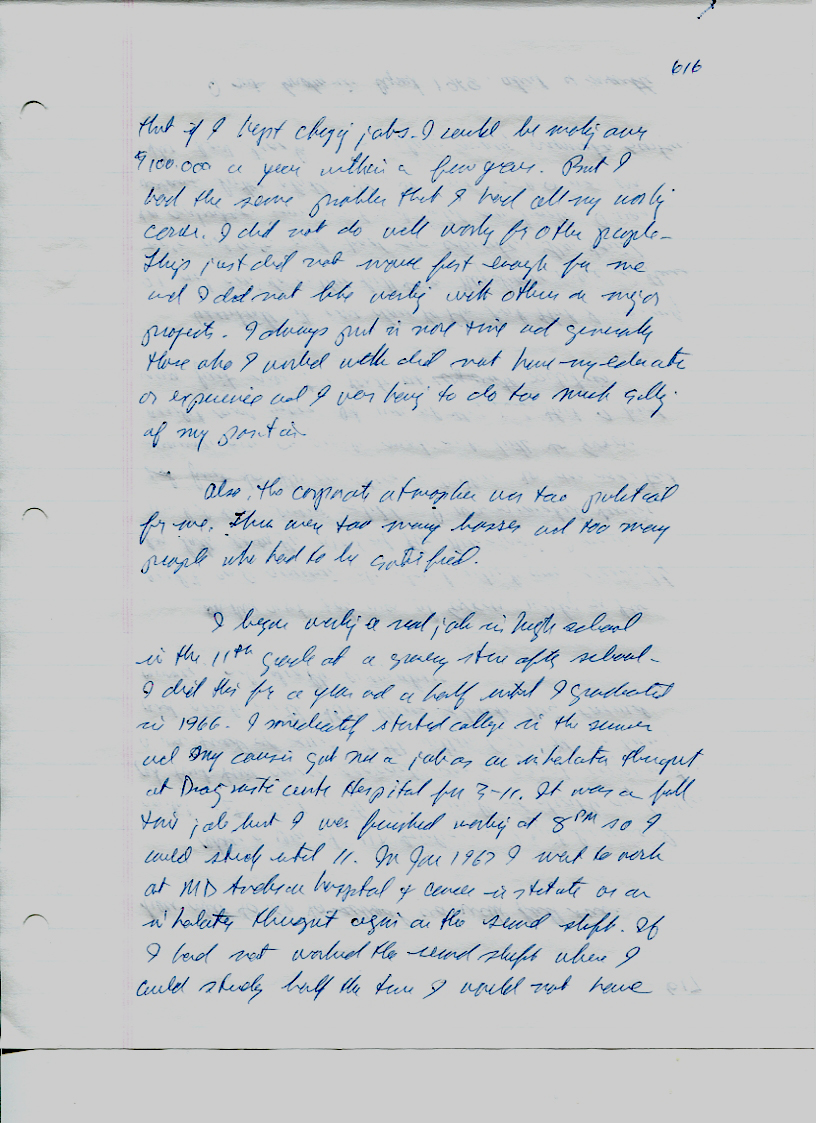 616
that if I kept changing jobs. I could be making over
$100.000 a year within a few years. But I
had the same problem that I had all my working
career. I did not do well working for other people.
Things just did not move fast enough for me
and I did not like working with others on major
projects. I always put in more time and generally
those who I worked with did not have my education
or experience and I was having to do too much
of my position.
Also, the corporate atmosphere was too political
for me. There were too many bosses and too many
people who had to be satisfied.
I began working a real job in high school
in the 11th grade at a grocery store after school.
I did this for a year and a half until I graduated
in 1966. I immediately started college in the summer
and my cousin got me a job as an inhalation therapist
at Diagnostic Center Hospital for 3-11. It was a full
time job but I was finished working at 8PM so I
could study until 11. In Jan 1967 I went to work
at MD Anderson hospital & cancer institute as an
inhalation therapist again on the second shift. If
I had not worked the second shift where I
could study half the time I would not have